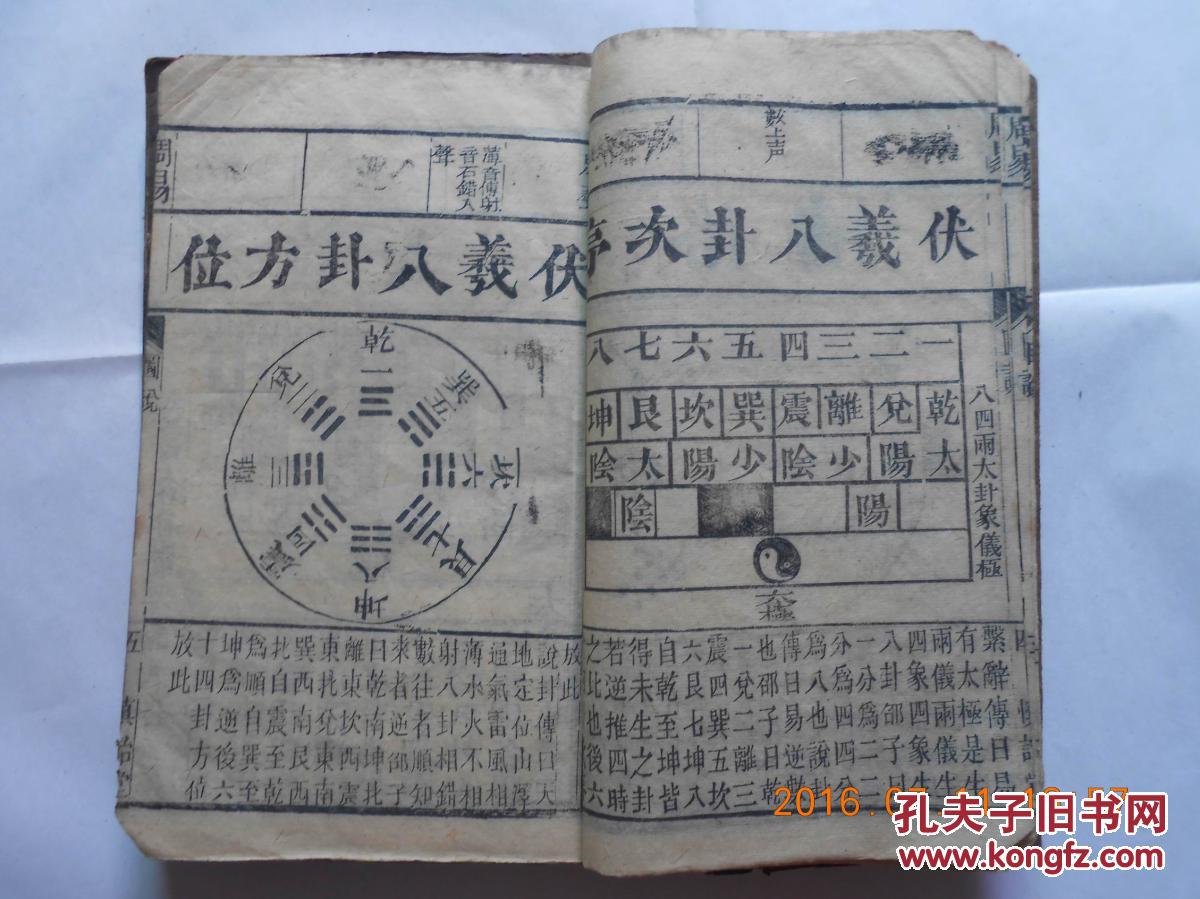 周易
數上声
伏羲八卦次序
一二三四五六七八
乾兌離震巽坎艮坤
太陽少陰少陽太陰
陽陰
太極
八四兩太卦象儀極
繫辭傳曰易
有太極是生
兩儀兩儀生
四象四象生
八卦邵子曰
一分爲二二
分爲四四分
爲八也說卦
傳曰易逆數
也邵子曰乾
一兌二離三
震四巽五坎
六艮七坤八
自乾至坤皆
得未生之卦
若逆推四時
之比也後六
放此
薄音傳射
音石錯入
聲
伏羲八卦方位
乾一
兌二
離三
震四
巽五
坎六
艮七
坤八
說卦傳曰天
地定位山澤
通氣雷風相
薄水火不相
射八卦相錯
數往者順知
來者逆邵子
曰乾南坤北
離東坎西震
東北兌東南
巽西南艮西
北自震至乾
爲順自巽至
坤爲逆後六
十四卦方位
放此
周易
五
2016.07
孔夫子旧书网
www.kongfz.com